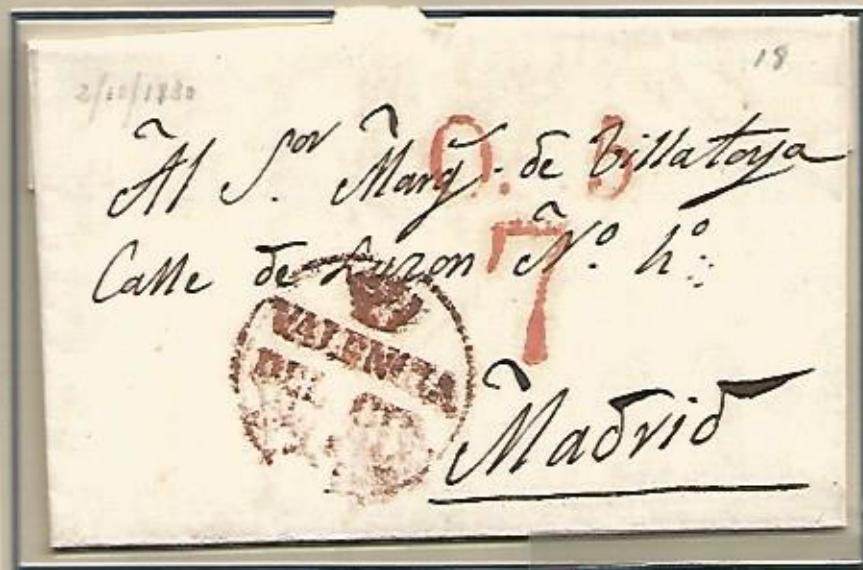 2/10/1830
18
Al S.or Marq. de Villatoya
O. 3
Calle de Luzon N.o 4.o
7
VALENCIA
DEL
Madrid